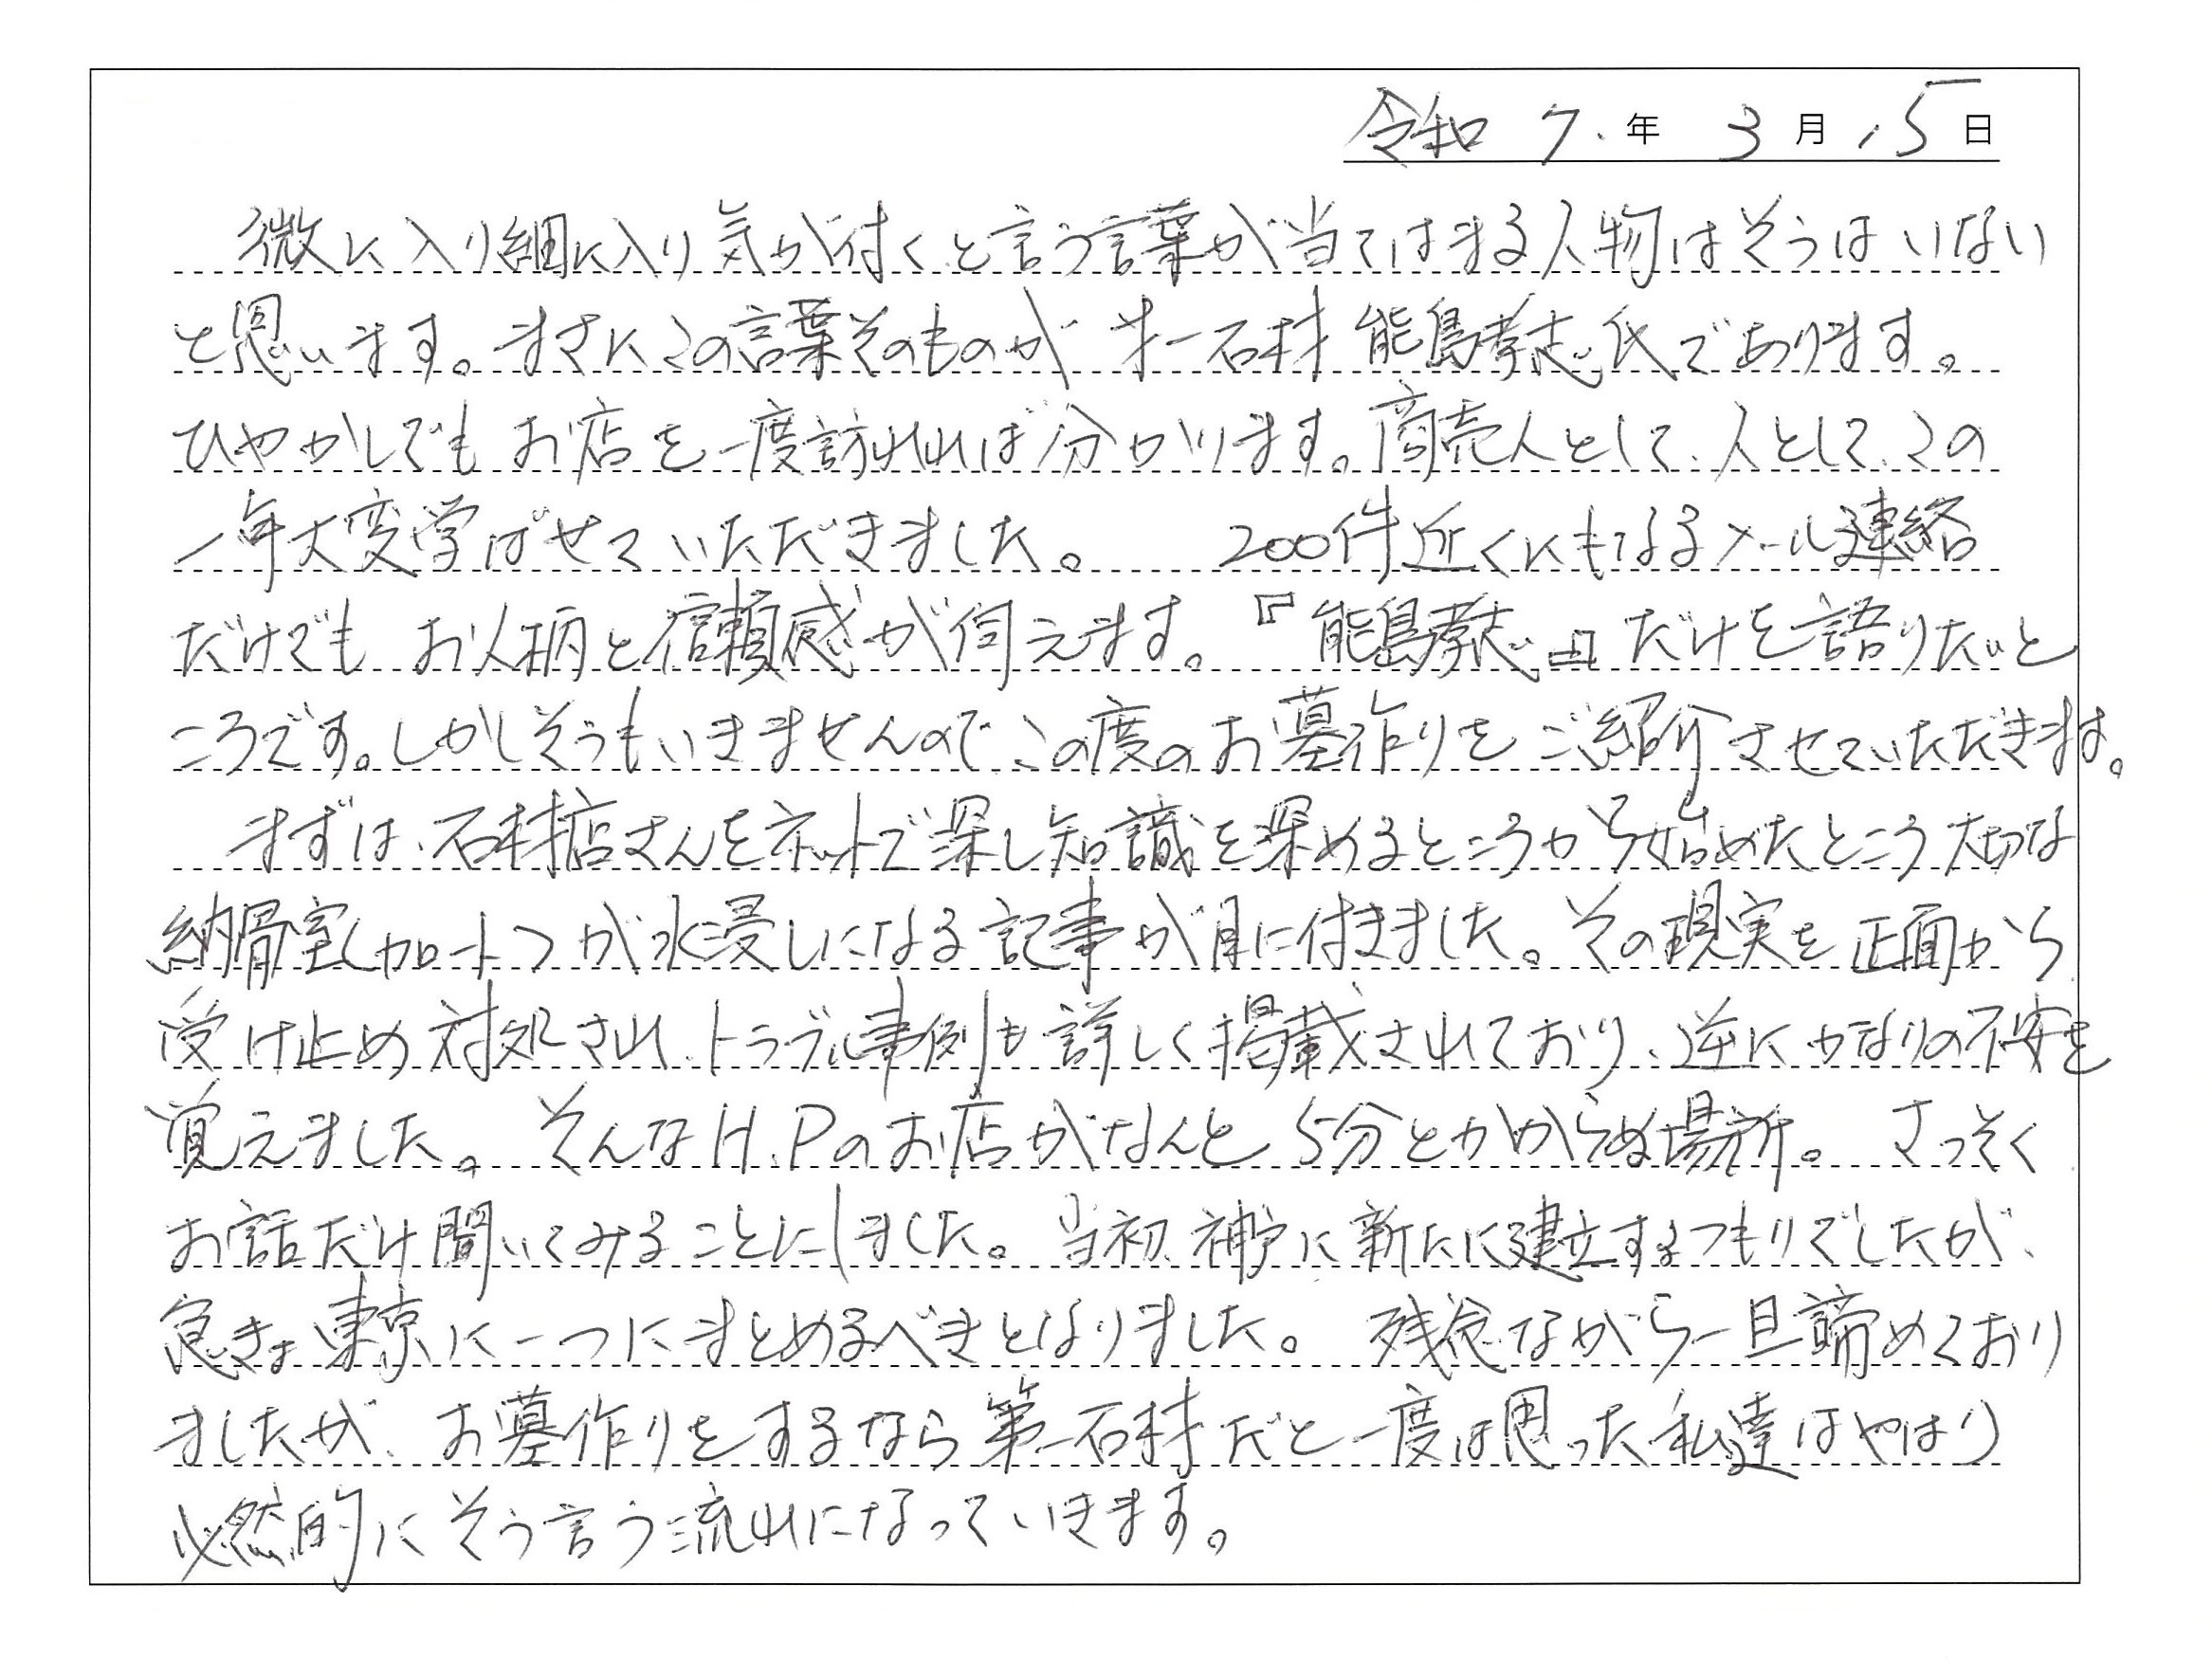 令和 7.年 3月 15日
微に入り細に入り気が付くと言う言葉が当てはまる人物はそうはいない
と思います。まさにこの言葉そのものが 才一石材 能島孝志氏であります。
ひやかしでも お店を一度訪れれば分かります。商売人として、人として、この
一年大変学ばせていただきました。 200件近くにもなるメール連絡
だけでも お人柄と信頼感が伺えます。『能島孝志』だけを語りたいと
ころです。しかしそうもいきませんので、この度のお墓作りをご紹介させていただきます。
まずは、石材店さんをネットで探し知識を深めるところから始めたところ 大切な
納骨室(カロート)が水浸しになる記事が目に付きました。その現実を正面から
受け止め 対処され、トラブル事例も詳しく掲載されており、逆にかなりの不安を
覚えました。そんなH.Pのお店がなんと 5分とかからぬ場所。 さっそく
お話だけ聞いてみることにしました。当初、神戸に新たに建立するつもりでしたが、
急きょ東京に一つにまとめるべきとなりました。 残念ながら一旦諦めており
ましたが、お墓作りをするなら第一石材だと一度は思った私達はやはり
必然的にそう言う流れになっていきます。